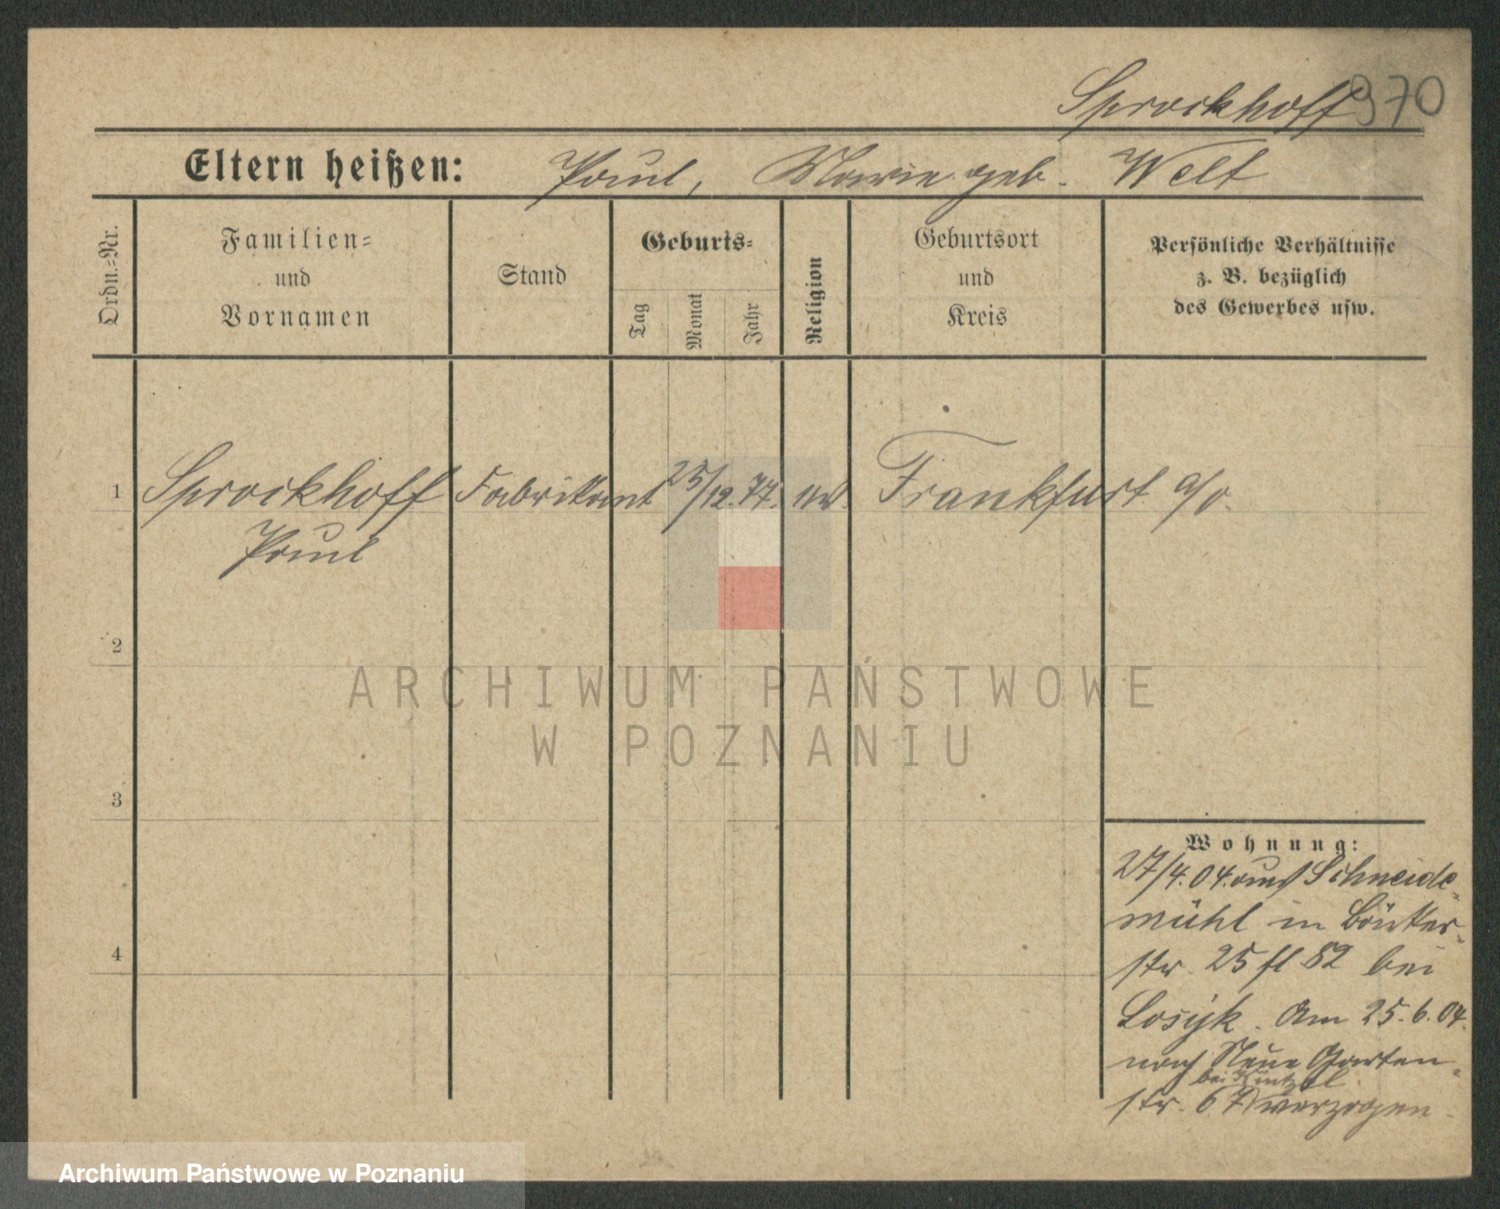 Sprockhoff 970
Eltern heißen: Paul, Marie geb. Welt
Ordn.-Nr.
Familien- und Vornamen
Stand
Geburts-
Tag
Monat
Jahr
Religion
Geburtsort und Kreis
Persönliche Verhältnisse
z. B. bezüglich
des Gewerbes usw.
1 Sprockhoff Fabrikant 25/12. 77. ev. Frankfurt a/o.
Paul
2
3
4
Wohnung:
27/4. 04. aus Schneide-
mühl in
str. 25 fl 82 bei
Losyk. Am 25. 6. 04.
nach Neue Garten-
bei
str. 67 verzogen.
ARCHIWUM PAŃSTWOWE
W POZNANIU
Archiwum Państwowe w Poznaniu